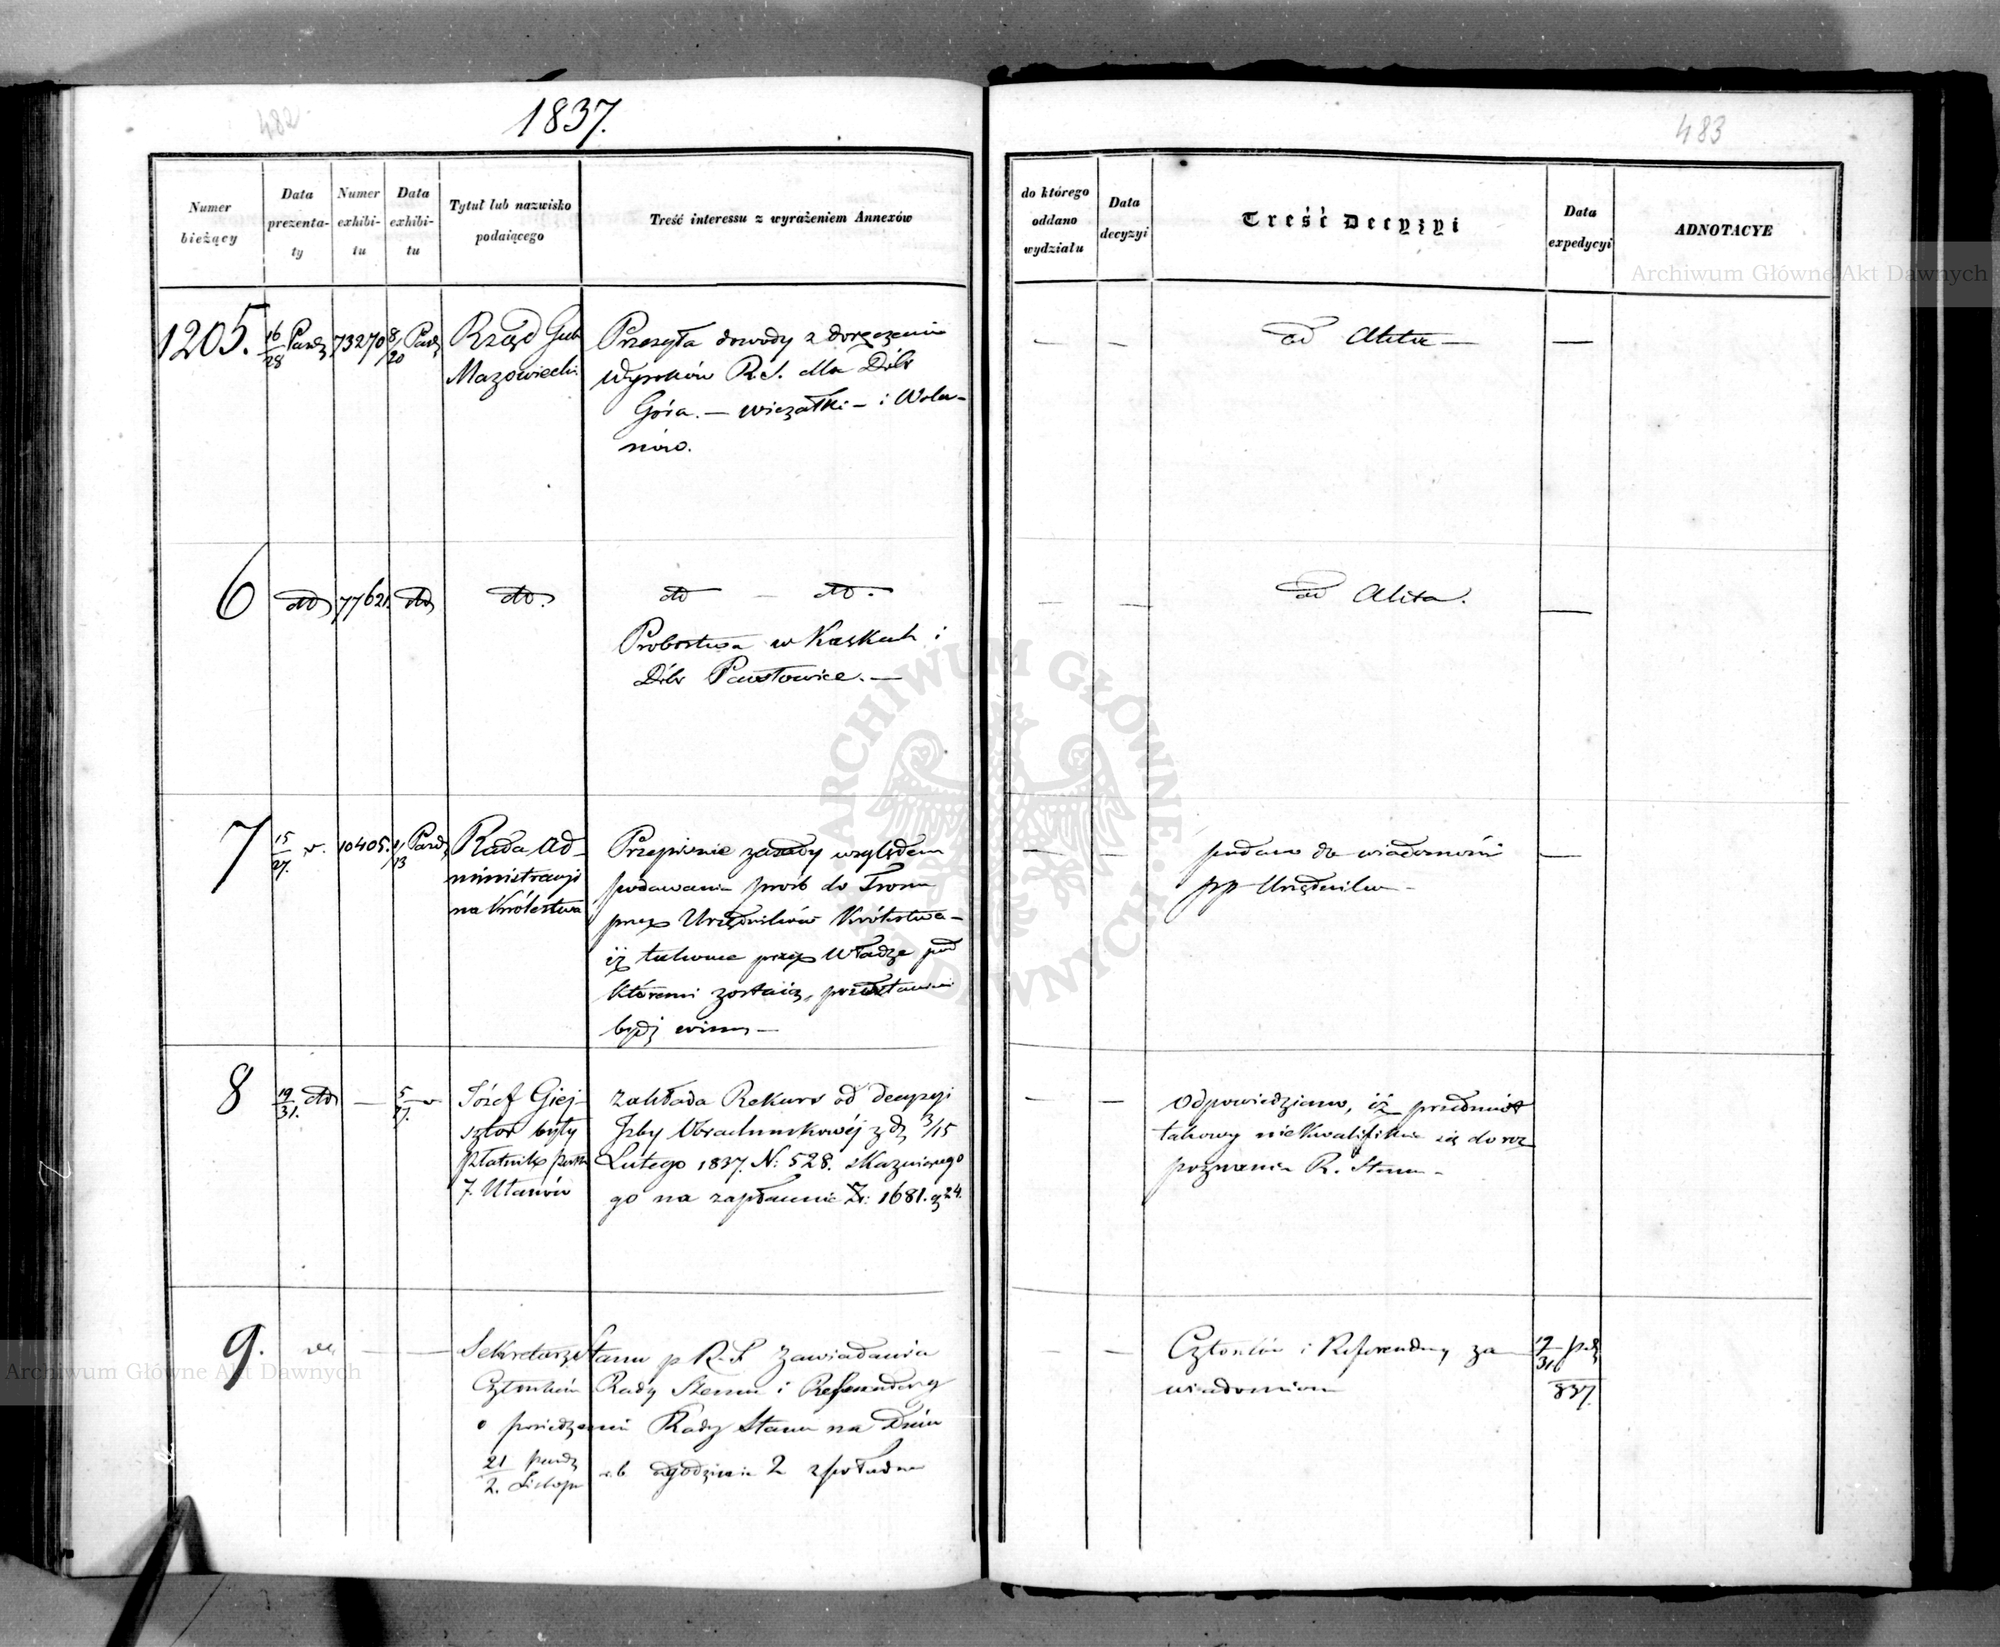 482.
1837.
Numer bieżący
Data prezentaty
Numer exhibitu
Data exhibitu
Tytuł lub nazwisko podaiącego
Treść interessu z wyrażeniem Annexów
1205.
16/28 Paźdz
73270
8/20 Paźdz
Rząd Gub
Mazowiecki
Przesyła dowody z doręczenia
Wyroków R.S. dla Dóbr
Góra. — – i Wola-
nów.
6
dto
77621.
dto
dto.
dto — dto.
Probostwa w Kaskach i
Dóbr Pawłowice. —
7
15/27. r.
10405.
1/13 Paźdz
Rada Ad-
ministracyj
na Królestwa
Przepisuie zasady względem
podawania prośb do Tronu
przez Urzędników Królestwa —
iż takowe przez Władze pod
któremi zostaią, przedstawione
bydź winny —
8
19/31. dto
—
5/17. r
Józef Giej-
sztor były
Płatnik
7. Ułanów
zakłada Rekurs od decyzyi
Izby Obrachunkowéj z d 3/15
Lutego 1837. N: 528. skazuiącego
go na zapłacenie Zł: 1681. g 24.
9.
— —
Sekretarz Stanu p R.S. Zawiadamia
Członków Rady Stanu i Referendarzy
o posiedzeniu Rady Stanu na Dniu
21 Paźdz/2. Listop r.b. o godzinie 2 z południa
483
do którego oddano wydziału
Data decyzyi
Treść Decyzyi
Data expedycyi
ADNOTACYE
— — ad Akta — —
— — ad Akta. —
— — podano do wiadomości —
pp Urzędników —
— — Odpowiedziano, iż przedmiot
takowy niekwalifikuie się do roz-
poznania R. Stanu —
— — Członków i Referendarzy za-
wiadomiono
19/31 Paźdz
837.
Archiwum Główne Akt Dawnych
ARCHIWUM GŁÓWNE AKT DAWNYCH
Archiwum Główne Akt Dawnych